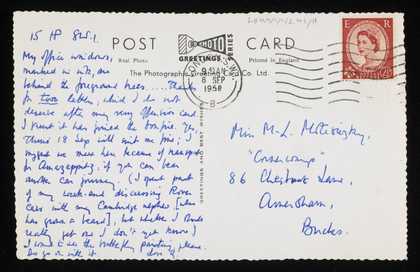 15 HP SW1.
My office windows,
marked in ink, are
behind the foreground trees.... Thanks
for two letters, which I do not
deserve after my very offensive card
I trust it has joined the bonfire. Yes,
Thurs 18 Sep will suit me fine; I
suggest we meet here because of
for if you can bear
another car journey (I spent part
of my week-end discussing Rover
Cars with my Cambridge nephew [who
has grown a beard], but whether I shall
really get one I don't yet know)
I want to see the butterfly painting, please.
Do go on with it.
POST CARD
Real Photo
PHOTO
GREETINGS
SERIES
Printed in England
The Photographic Greeting Card Co. Ltd.
GREETINGS AND BEST WISHES
LONDON S.W.1
6 SEP
1958
B
E R
Miss M-L.
86 Chestnut Lane,
Amersham,
Bucks.